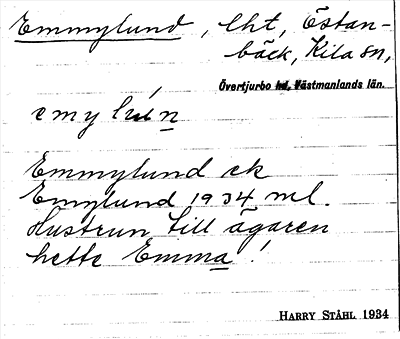 Emmylund, lht, Östan-
bäck, Kila sn,
Övertjurbo hd, Västmanlands län.
emylún
Emmylund ek
Emylund 1934 ml.
Hustrun till ägaren
hette Emma!
HARRY STÅHL 1934